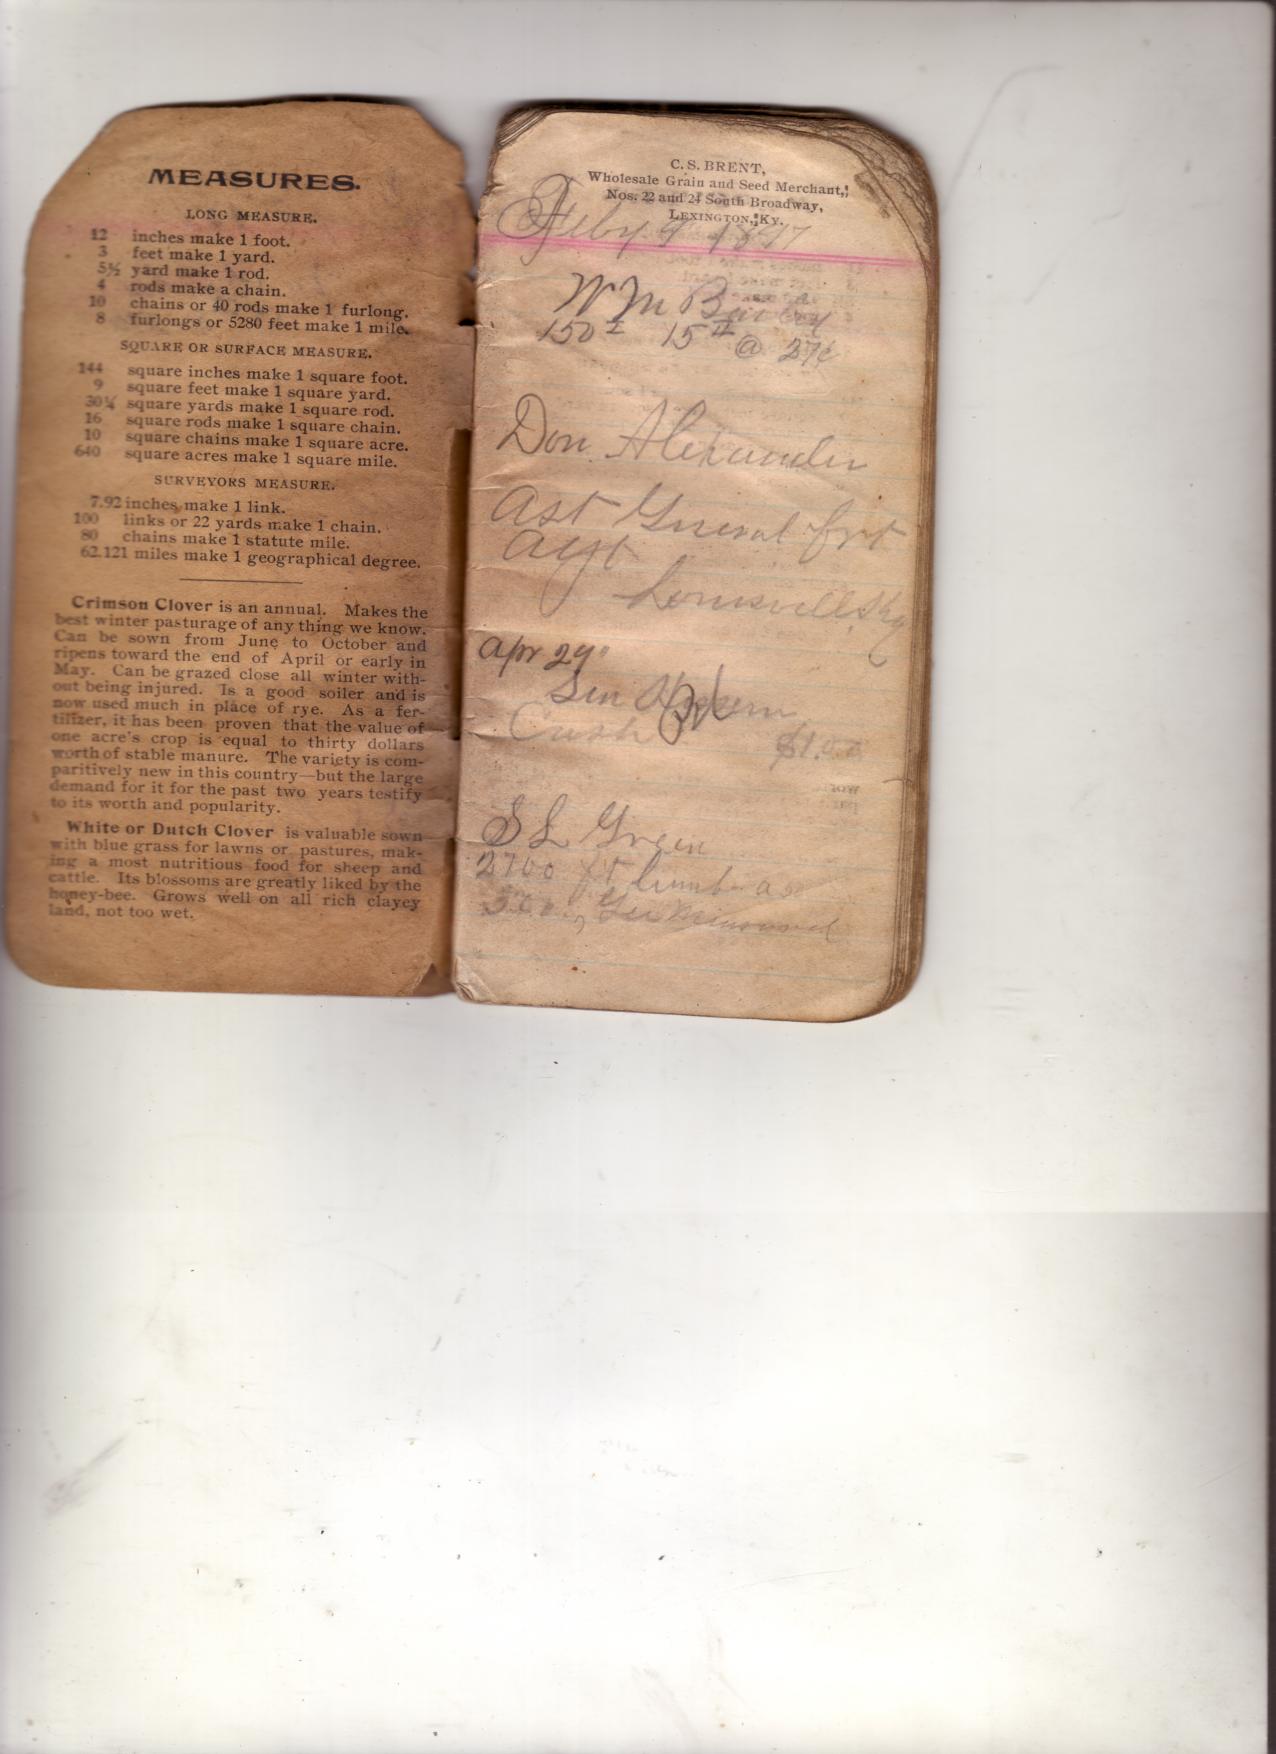 MEASURES.
LONG MEASURE.
12 inches make 1 foot.
3 feet make 1 yard.
5½ yard make 1 rod.
4 rods make a chain.
10 chains or 40 rods make 1 furlong.
8 furlongs or 5280 feet make 1 mile.
SQUARE OR SURFACE MEASURE.
144 square inches make 1 square foot.
9 square feet make 1 square yard.
30¼ square yards make 1 square rod.
16 square rods make 1 square chain.
10 square chains make 1 square acre.
640 square acres make 1 square mile.
SURVEYORS MEASURE.
7.92 inches make 1 link.
100 links or 22 yards make 1 chain.
80 chains make 1 statute mile.
62.121 miles make 1 geographical degree.
Crimson Clover is an annual. Makes the
best winter pasturage of any thing we know.
Can be sown from June to October and
ripens toward the end of April or early in
May. Can be grazed close all winter with-
out being injured. Is a good soiler and is
now used much in place of rye. As a fer-
tilizer, it has been proven that the value of
one acre's crop is equal to thirty dollars
worth of stable manure. The variety is com-
paritively new in this country—but the large
demand for it for the past two years testify
to its worth and popularity.
White or Dutch Clover is valuable sown
with blue grass for lawns or pastures, mak-
ing a most nutritious food for sheep and
cattle. Its blossoms are greatly liked by the
honey-bee. Grows well on all rich clayey
land, not too wet.
C. S. BRENT,
Wholesale Grain and Seed Merchant,
Nos. 22 and 24 South Broadway,
LEXINGTON, KY.
Feby 9 1897
W M
150 15 @ 27¢
Don Alexander
Ast General frt
Agt
Louisville Ky
Apr 29"
Cash $1.00
S L Green
2700 ft